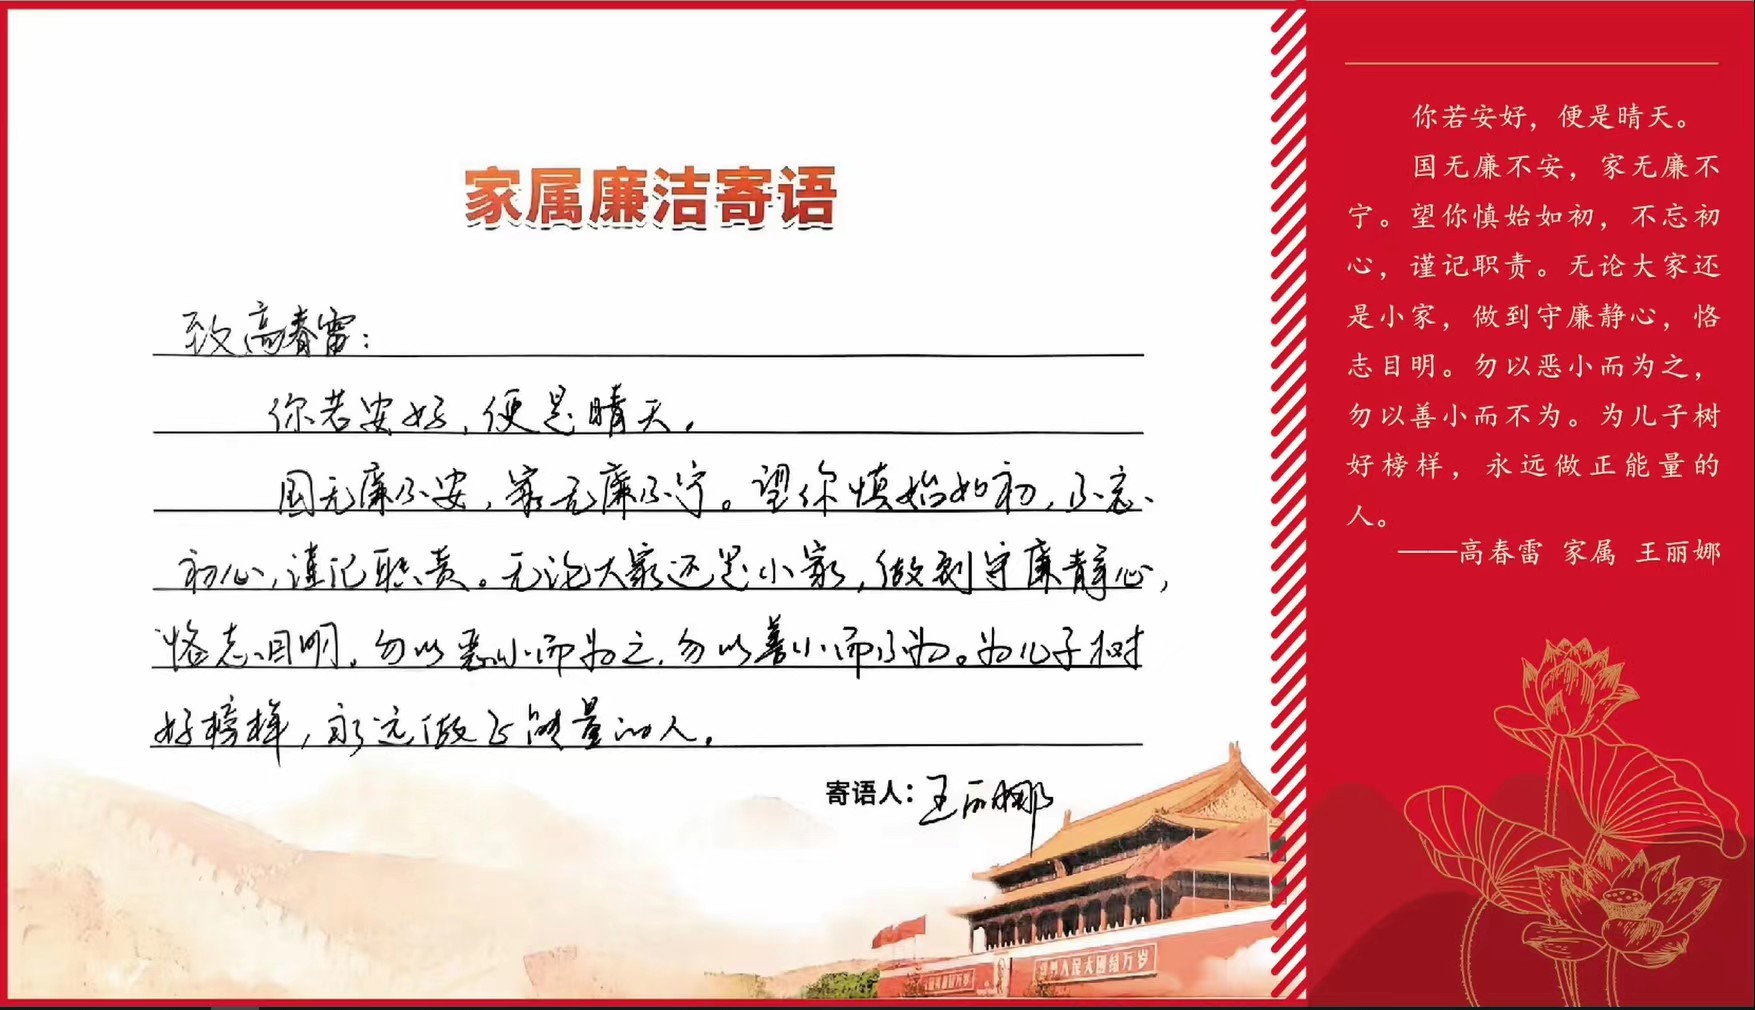 家属廉洁寄语
致高春雷：
你若安好，便是晴天。
国无廉不安，家无廉不宁。望你慎始如初，不忘
初心，谨记职责。无论大家还是小家，做到守廉静心，
恪志目明。勿以恶小而为之，勿以善小而不为。为儿子树
好榜样，永远做正能量的人。
寄语人：王丽娜
你若安好，便是晴天。
国无廉不安，家无廉不
宁。望你慎始如初，不忘初
心，谨记职责。无论大家还
是小家，做到守廉静心，恪
志目明。勿以恶小而为之，
勿以善小而不为。为儿子树
好榜样，永远做正能量的
人。
——高春雷 家属 王丽娜
人民大团结万岁